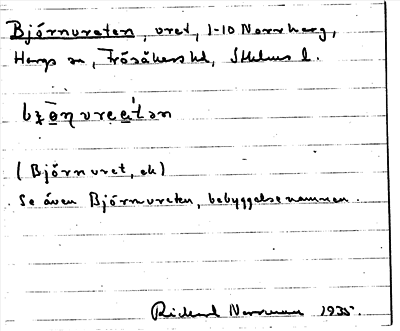 Björnvreten, vret, 1-10 Norrharg,
Hargs sn, Frösåkers hd, Sthlms l.
(Björnvret, ek)
Se även Björnvreten, bebyggelsenamnen.
Rickard 1935.